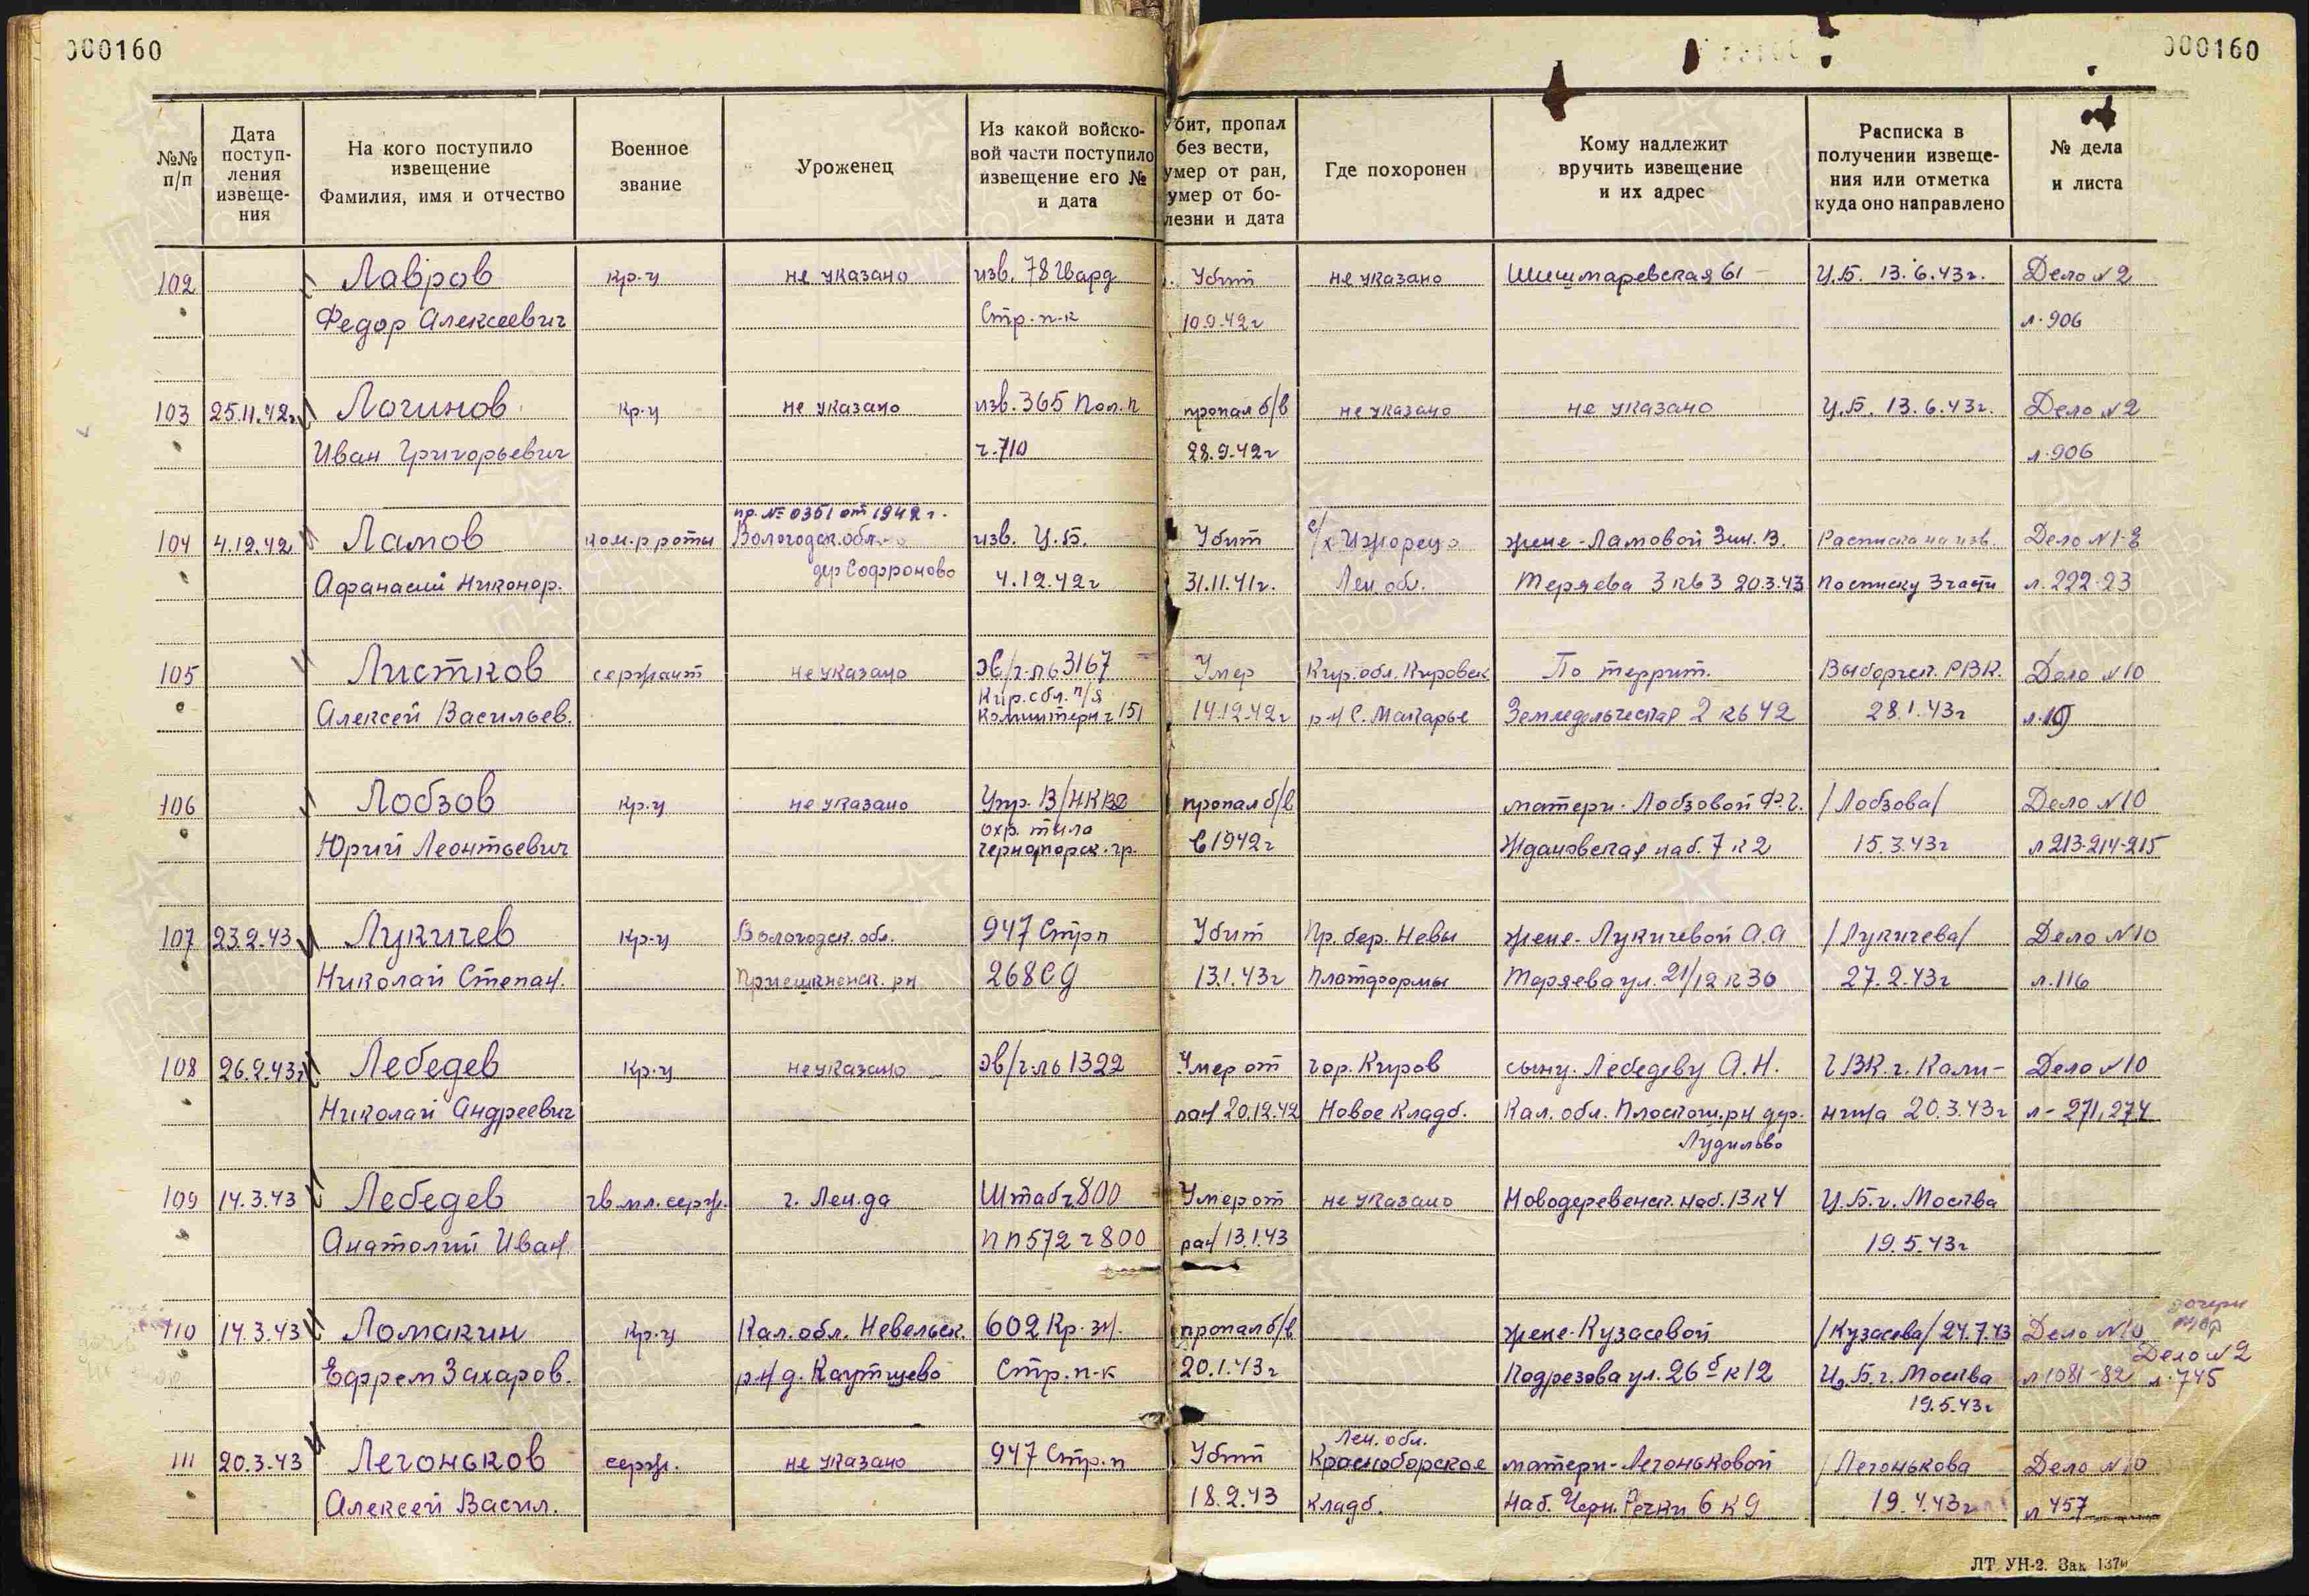 000160
000160
№№ п/п
Дата поступ-
ления извеще-
ния
На кого поступило
извещение
Фамилия, имя и отчество
Военное
звание
Уроженец
Из какой войско-
вой части поступило
извещение его №
и дата
Убит, пропал
без вести,
умер от ран,
умер от бо-
лезни и дата
Где похоронен
Кому надлежит
вручить извещение
и их адрес
Расписка в
получении извеще-
ния или отметка
куда оно направлено
№ дела
и листа
102 Лавров кр-ц не указано изв. 78 Гвард. Убит не указано Шишмаревская 61 Ц.Б. 13.6.43г. Дело №2
Федор Алексеевич Стр. п-к 10.9.42г л.906
103 25.11.42г. Логинов кр-ц не указано изв. 365 Пол. п пропал б/в не указано не указано Ц.Б. 13.6.43г. Дело №2
Иван Григорьевич ч.710 28.9.42г л.906
пр. № 0351 от 1942 г.
104 4.12.42 Ламов ком.р роты Вологодск. обл. изв. Ц.Б. Убит с/х Ижорец Жене - Ламовой Зин. В. Расписка на изв. Дело №1-
Афанасий Никонор. дер Софроново 4.12.42г 31.11.41г. Лен. обл. Теряева 3 кв 3 20.3.43 по списку 3 части л.222-23
105 Листков сержант не указано эв/г-ль 3167 Умер Кир. обл. Кировск По террит. Выборгск. РВК. Дело №10
Кир. обл. п/я
Алексей Васильев. Коминтерн ч 151 14.12.42г р-н С. Макарье Земледельческая 2 кв 42 28.1.43г
106 Лобзов кр-ц не указано Упр. В/НКВД пропал б/в матери - Лобзовой Ф.Г. /Лобзова/ Дело №10
охр. тыла
Юрий Леонтьевич Черноморск. гр. в 1942г Ждановская наб. 7 к 2 15.3.43г л 213-214-215
107 23.2.43 Лукичев кр-ц Вологодск. обл. 947 Стр п Убит Пр. бер. Невы Жене - Лукичевой А.А /Лукичева/ Дело №10
Николай Степан. рн 268 СД 13.1.43г платформы Теряева ул. 21/12 к 30 27.2.43г л.116
108 26.2.43г Лебедев кр-ц не указано эв/г-ль 1322 Умер от гор. Киров сыну. Лебедеву А.Н. ГВК. г. Кали- Дело №10
Николай Андреевич ран 20.12.42 Новое Кладб. Кал. обл. Плоскош. рн дер. нина 20.3.43г л - 271, 274
Лудильво
109 14.3.43 Лебедев гв мл. серж. г. Лен.да Штаб ч 800 Умер от не указано Новодеревенск. наб. 13 к 4 Ц.Б. г. Москва
Анатолий Иван. пп 572 ч 800 ран 13.1.43 19.5.43г
110 14.3.43 Ломакин кр-ц Кал. обл. Невельск. 602 Кр. зн. пропал б/в жене - Кузасевой /Кузасева/ 24.7.43 Дело №10
Дело №2
Ефрем Захаров. р-н д. Каутицево Стр. п-к 20.1.43г Подрезова ул. 26 б к 12 Ц.Б. г. Москва л 1081-82 л.745
19.5.43г
Лен. обл.
111 20.3.43 Легоньков серж. не указано 947 Стр. п Убит Красноборское матери - Легоньковой /Легонькова Дело №10
Алексей Васил. 18.2.43 кладб. наб. Черн. Речки 6 к 9 19.4.43г л 457
ЛТ УН-2. Зак 137